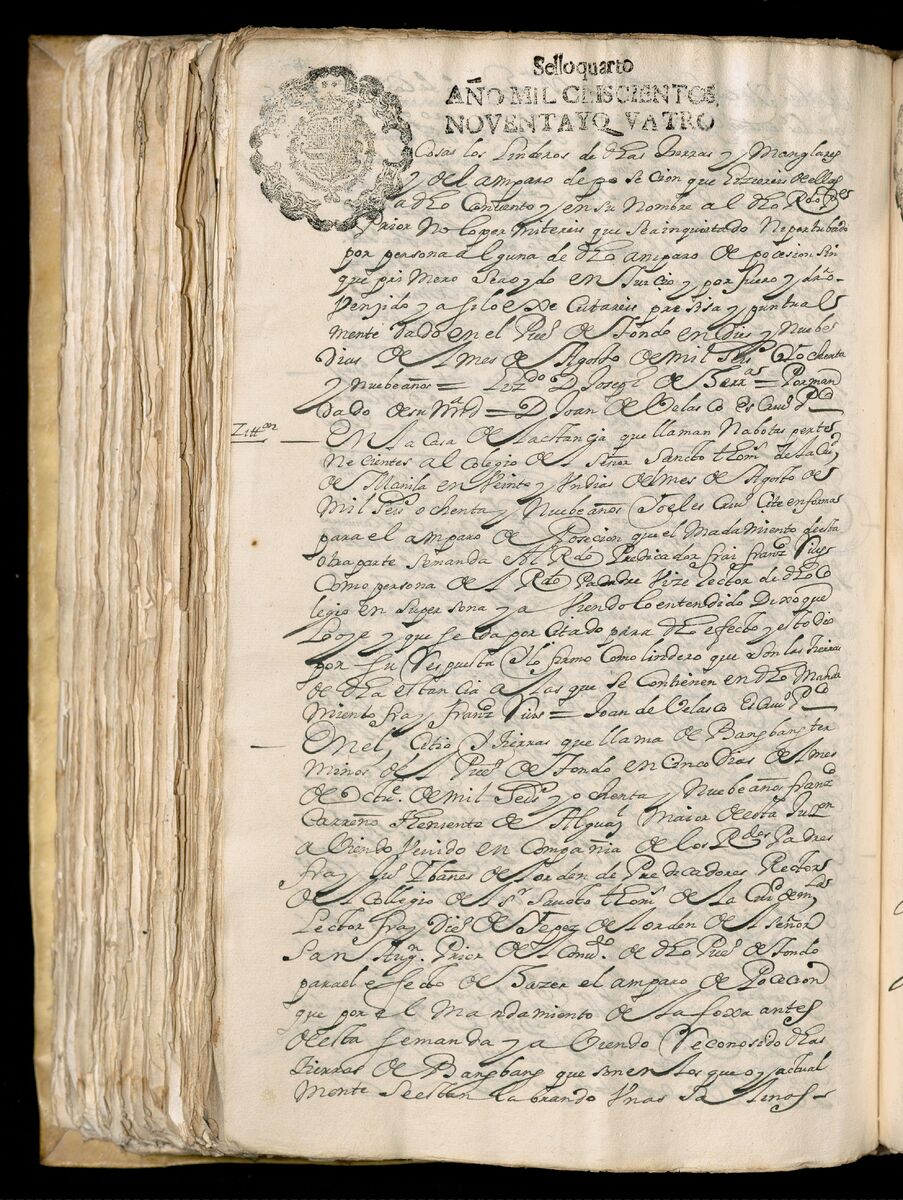 Sello quarto
AÑO MIL CEISCIENTOS,
NOVENTA Y Q VATRO
Cosas los Linderos de dhas tierras y Manglares
y del amparo de po se cion que hiziereis de ellos
a dho Conbento y en su Nombre al dho Rdo Pe
Prior No lo per mitereis que sea inquietado Ne pertubado
por persona al guna de dho amparo de posesion sin
que pri mero sea oydo en Juicio y por fuero y dro
Venzido y a si lo exe cutareis pressisa y puntual
mente dado en el Pueo de tondo en Dies y Nuebe
Dias del mes de Agosto de mil seiso Ochenta
y Nuebe años = Lizdo D Joseph de = Por man
dado de su Md = D Joan de Velasco es Cruo Pco
Zitton En la Casa de la estancia que llaman Nabotas perte
Ne cientes al Colegio del Señor Sancto thoms de la Ciud
de Manila en Veinte y Un dias del mes de Agosto de
mil seiso ochenta y Nuebe años Yo el es Cruo Cite en forma
para el amparo de Posecion que el Mada miento de esta
otra parte se manda Al Rdo Predicador frai franco Vivas
Como persona del Rdo Padre Vize Rector de dho Co
legio en su per sona y a Viendo lo entendido Dixo que
Lo oye y que se da por citado para dho efecto y esto dio
por su Respuesta y lo firmo Como lindero que son las tierras
de dha estancia a las que se Contienen en dho Manda
miento fray franco Vivas = Joan de Velasco Es Cruo Pco
En el Citio y tierras que llama de Bangbang ter
minos del Pueo de tondo en Cinco Dias del mes
de Octue de mil seiso y o chenta y Nuebe años franco
Carreño theniente de Alguazl Maior de esta Juron
a Viendo Venido en Compania de los Rdos Padres
fray Juo Ybañes del orden de Predicadores Rector
del Collegio de Sto thoms de la Ciud de
Lector fray Dio de Yepez del orden del Señor
San Augn Prior del Conuto de dho Pueo de tondo
para el efecto de Hazer el amparo de Pocecion
que por el Mandamiento de la foxa antes
de esta se manda y a Viendo Reconosido dhas
tierras de Bangbang que son en las que oy actual
mente se estan labrando Unas Salinas